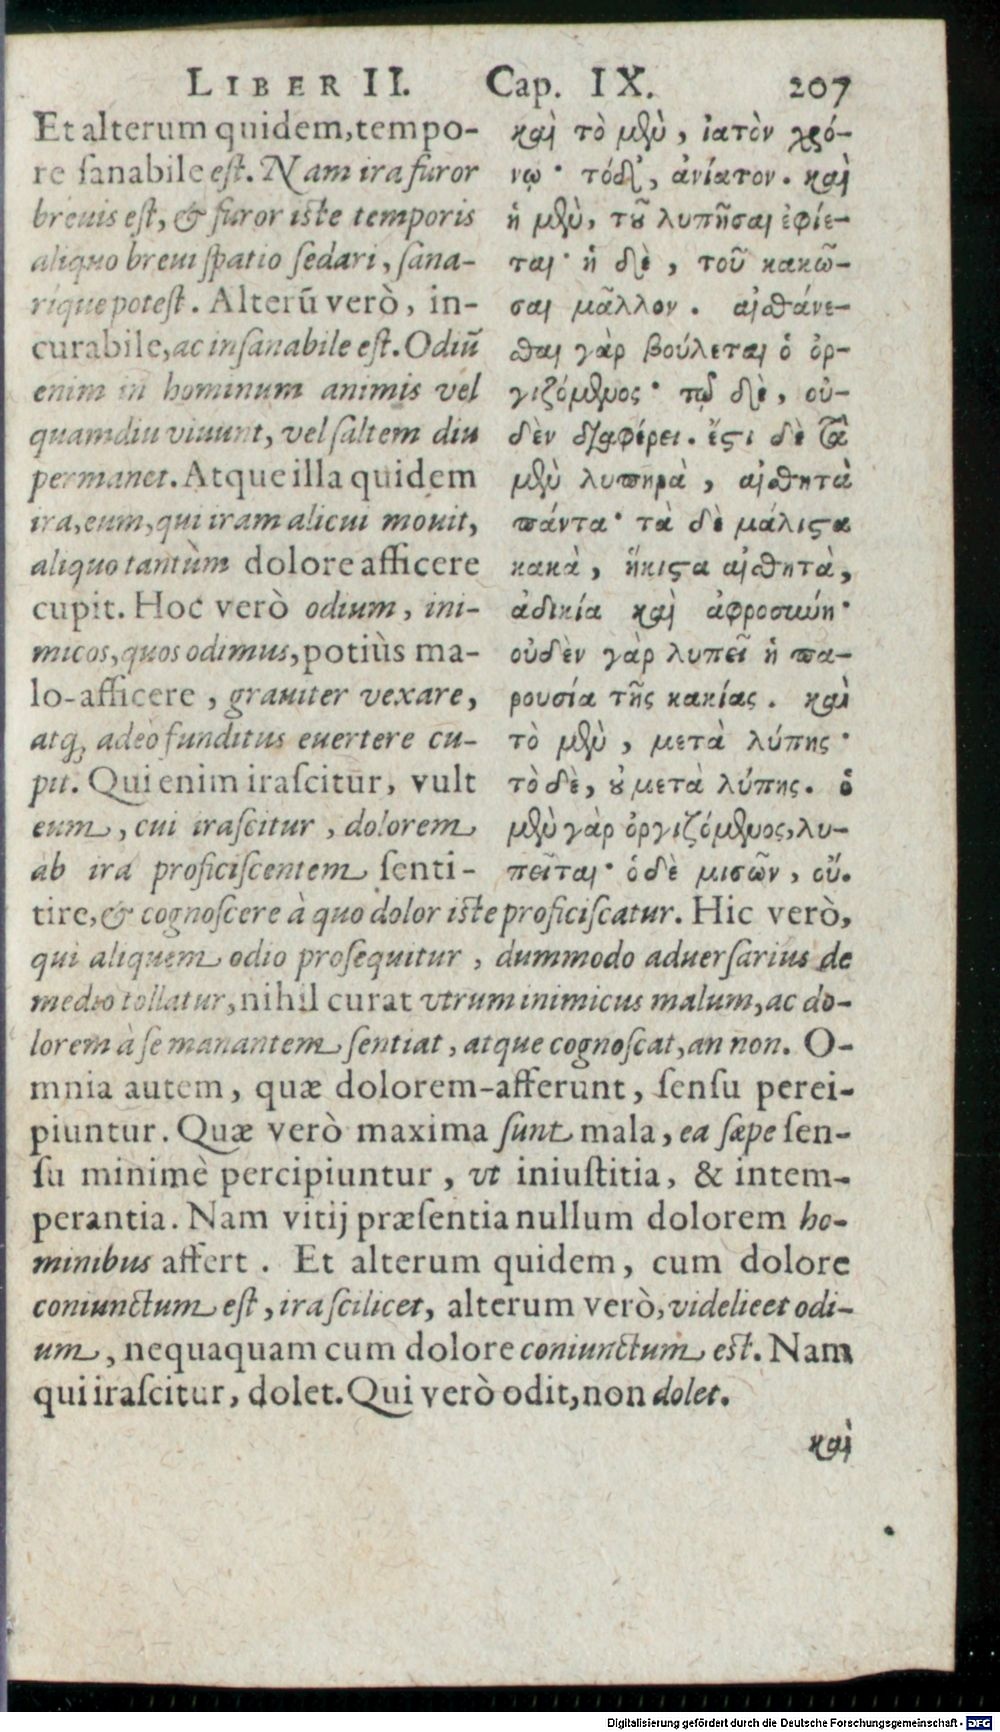 LIBER II. Cap. IX. 207
Et alterum quidem, tempo-
re sanabile est. Nam ira furor
breuis est, & furor iste temporis
aliquo breui spatio sedari, sana-
ríque potest. Alterũ verò, in-
curabile, ac insanabile est. Odiũ
enim in hominum animis vel
quamdiu viuunt, vel saltem diu
permanet. Atque illa quidem
ira, eum, qui iram alicui mouit,
aliquo tantùm dolore afficere
cupit. Hoc verò odium, ini-
micos, quos odimus, potiùs ma-
lo-afficere, grauiter vexare,
atq; adeò funditus euertere cu-
pit. Qui enim irascitur, vult
eum, cui irascitur, dolorem
ab ira proficiscentem senti-
καὶ τὸ μὲν, ἰατὸν χρό-
νῳ· τὸ δ', ἀνίατον. καὶ
ἡ μὲν, τοῦ λυπῆσαι ἐφίε-
ται· ἡ δὲ, τοῦ κακῶ-
σαι μᾶλλον. αἰσθάνε-
σθαι γὰρ βούλεται ὁ ὀρ-
γιζόμενος· τῷ δὲ, οὐ-
δὲν διαφέρει. ἔστι δὲ τὰ
μὲν λυπηρὰ, αἰσθητὰ
πάντα· τὰ δὲ μάλιστα
κακὰ, ἥκιστα αἰσθητὰ,
ἀδικία καὶ ἀφροσύνη·
οὐδὲν γὰρ λυπεῖ ἡ πα-
ρουσία τῆς κακίας. καὶ
τὸ μὲν, μετὰ λύπης·
τὸ δὲ, οὐ μετὰ λύπης. ὁ
μὲν γὰρ ὀργιζόμενος, λυ-
πεῖται· ὁ δὲ μισῶν, οὔ.
tire, & cognoscere à quo dolor iste proficiscatur. Hic verò,
qui aliquem odio prosequitur, dummodo aduersarius de
medio tollatur, nihil curat vtrum inimicus malum, ac do-
lorem à se manantem sentiat, atque cognoscat, an non. O-
mnia autem, quæ dolorem-afferunt, sensu perci-
piuntur. Quæ verò maxima sunt mala, ea sæpe sen-
su minimè percipiuntur, vt iniustitia, & intem-
perantia. Nam vitij præsentia nullum dolorem ho-
minibus affert. Et alterum quidem, cum dolore
coniunctum est, ira scilicet, alterum verò, videlicet odi-
um, nequaquam cum dolore coniunctum est. Nam
qui irascitur, dolet. Qui verò odit, non dolet.
καὶ
Digitalisierung gefördert durch die Deutsche Forschungsgemeinschaft - DFG